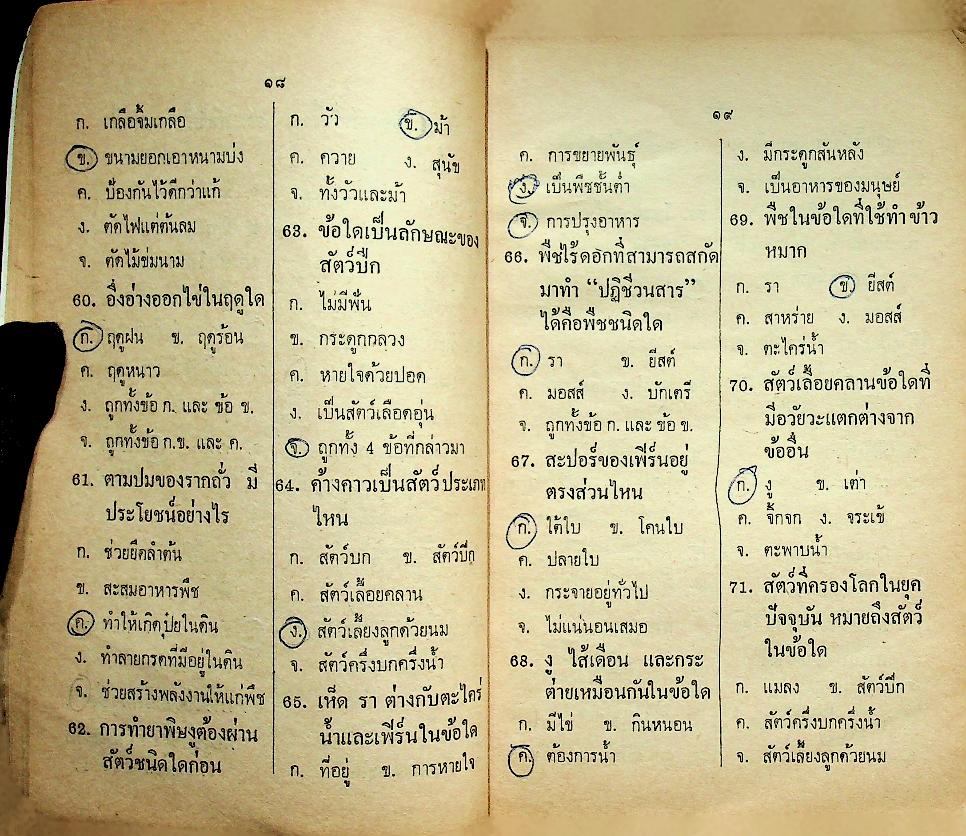 ๑๘
ก. เกลือจิ้มเกลือ
ข. ขนามยอกเอาหนามบ่ง
ค. ป้องกันไว้ดีกว่าแก้
ง. ตัดไฟแต่ต้นลม
จ. ตัดไม้ข่มนาม
60. อึ่งอ่างออกไข่ในฤดูใด
ก. ฤดูฝน ข. ฤดูร้อน
ค. ฤดูหนาว
ง. ถูกทั้งข้อ ก. และ ข้อ ข.
จ. ถูกทั้งข้อ ก.ข. และ ค.
61. ตามปมของรากถั่ว มี
ประโยชน์อย่างไร
ก. ช่วยยึดลำต้น
ข. สะสมอาหารพืช
ค. ทำให้เกิดปุ๋ยในดิน
ง. ทำลายกรดที่มีอยู่ในดิน
จ. ช่วยสร้างพลังงานให้แก่พืช
62. การทำยาพิษงูต้องผ่าน
สัตว์ชนิดใดก่อน
ก. วัว ข. ม้า
ค. ควาย ง. สุนัข
จ. ทั้งวัวและม้า
63. ข้อใดเป็นลักษณะของ
สัตว์ปีก
ก. ไม่มีฟัน
ข. กระดูกกลวง
ค. หายใจด้วยปอด
ง. เป็นสัตว์เลือดอุ่น
จ. ถูกทั้ง 4 ข้อที่กล่าวมา
64. ค้างคาวเป็นสัตว์ประเภท
ไหน
ก. สัตว์บก ข. สัตว์ปีก
ค. สัตว์เลื้อยคลาน
ง. สัตว์เลี้ยงลูกด้วยนม
จ. สัตว์ครึ่งบกครึ่งน้ำ
65. เห็ด รา ต่างกับตะไคร่
น้ำและเฟิร์นในข้อใด
ก. ที่อยู่ ข. การหายใจ
๑๙
ค. การขยายพันธุ์
ง. เป็นพืชชั้นต่ำ
จ. การปรุงอาหาร
66. พืชไร้ดอกที่สามารถสกัด
มาทำ “ปฏิชีวนสาร”
ได้คือพืชชนิดใด
ก. รา ข. ยีสต์
ค. มอสส์ ง. บักเตรี
จ. ถูกทั้งข้อ ก. และ ข้อ ข.
67. สะปอร์ของเฟิร์นอยู่
ตรงส่วนไหน
ก. ใต้ใบ ข. โคนใบ
ค. ปลายใบ
ง. กระจายอยู่ทั่วไป
จ. ไม่แน่นอนเสมอ
68. งู ไส้เดือน และกระ
ต่ายเหมือนกันในข้อใด
ก. มีไข่ ข. กินหนอน
ค. ต้องการน้ำ
ง. มีกระดูกสันหลัง
จ. เป็นอาหารของมนุษย์
69. พืชในข้อใดที่ใช้ทำข้าว
หมาก
ก. รา ข. ยีสต์
ค. สาหร่าย ง. มอสส์
จ. ตะไคร่น้ำ
70. สัตว์เลื้อยคลานข้อใดที่
มีอวัยวะแตกต่างจาก
ข้ออื่น
ก. งู ข. เต่า
ค. จิ้กจก ง. จระเข้
จ. ตะพาบน้ำ
71. สัตว์ที่ครองโลกในยุค
ปัจจุบัน หมายถึงสัตว์
ในข้อใด
ก. แมลง ข. สัตว์ปีก
ค. สัตว์ครึ่งบกครึ่งน้ำ
จ. สัตว์เลี้ยงลูกด้วยนม